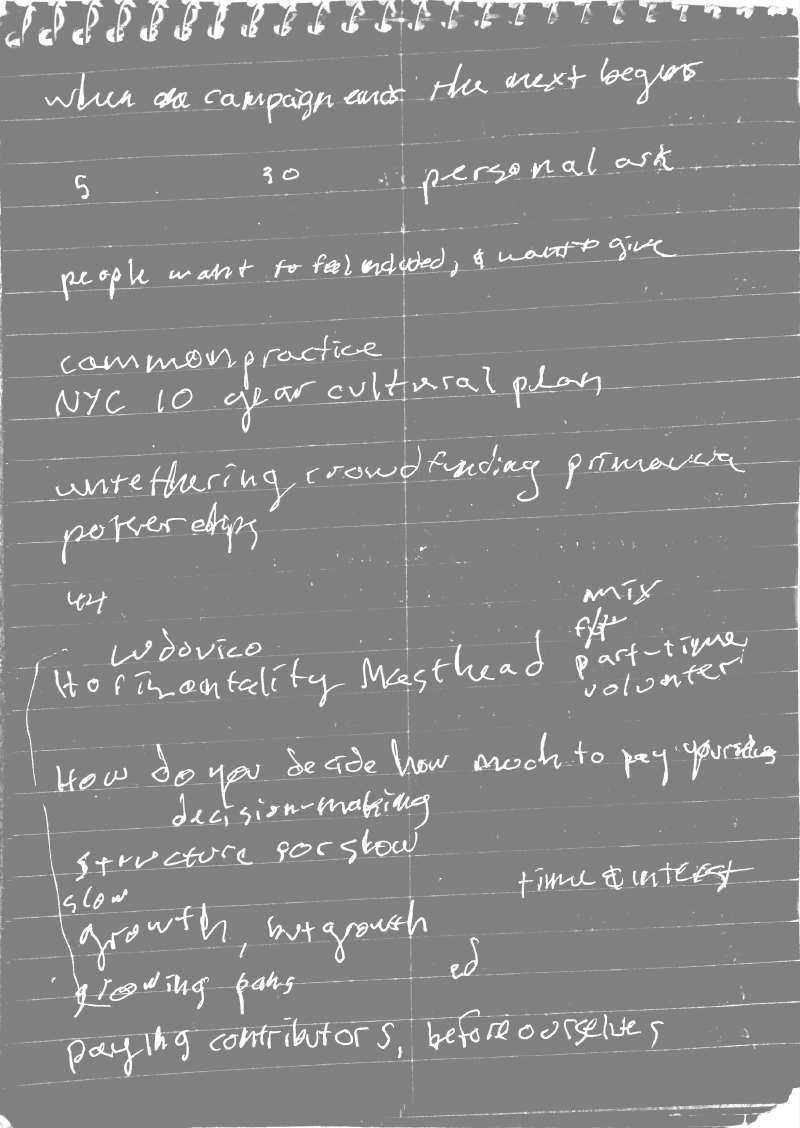 when one campaign ends the next begins
5 30 personal ask
people want to feel included, & want to give
common practice
NYC 10 year cultural plan
untethering crowdfunding primavera
potter chips
44
mix
Ludovico
f/t
Horizontality Masthead part-time
volunter
How do you decide how much to pay yourselves
decision-making
structure for slow
time & interest
slow
growth, but growth
ed
growing pans
paying contributors, before ourselves